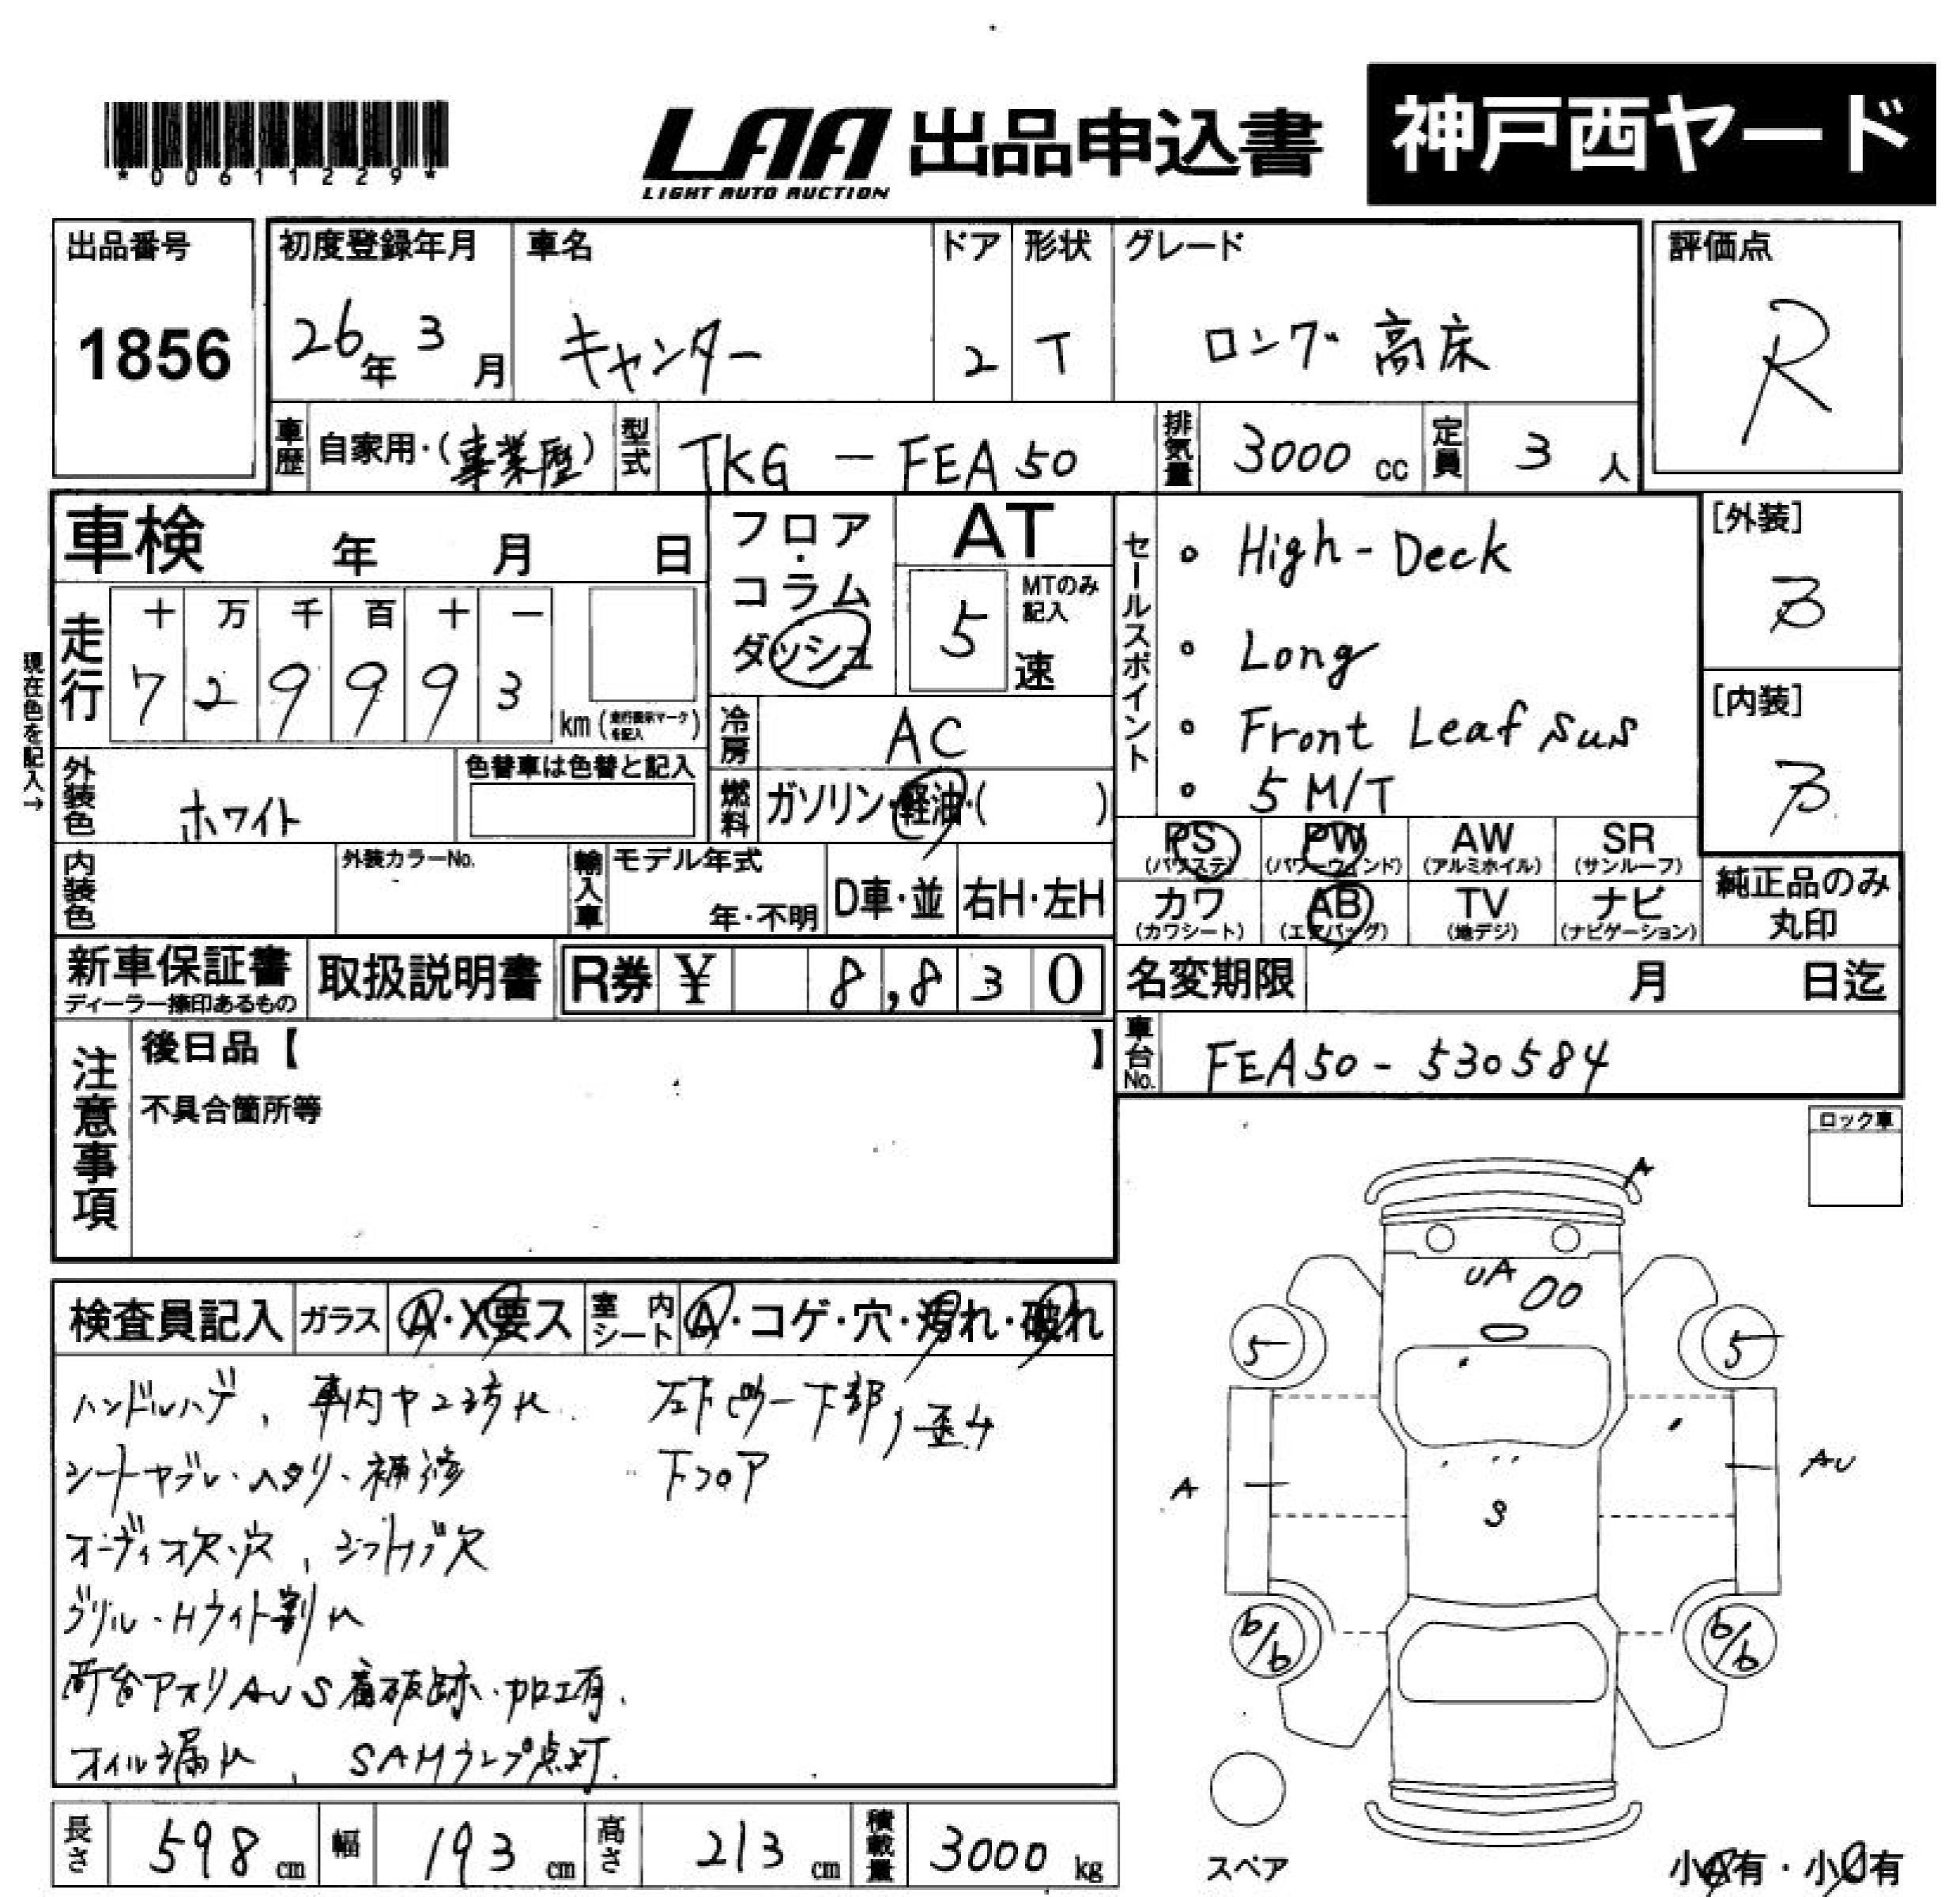 *00611229*
LAA 出品申込書
LIGHT AUTO AUCTION
神戸西ヤード
出品番号 初度登録年月 車名 ドア 形状 グレード 評価点
1856 26年 3月 キャンター 2 T ロング 高床 R
車歴 自家用・(事業歴) 型式 TKG-FEA50 排気量 3000 cc 定員 3 人
車検 年 月 日
フロア・コラム ダッシュ
AT
5 速 MTのみ記入
セールスポイント
・High-Deck
・Long
・Front Leaf sus
・5 M/T
[外装]
B
[内装]
B
現在色を記入→
走行 十 万 千 百 十 一
7 2 9 9 9 3 km (走行表示マークを記入)
冷房 AC
燃料 ガソリン・軽油・( )
外装色 ホワイト 色替車は色替と記入
PS (パワステ) PW (パワーウィンド) AW (アルミホイル) SR (サンルーフ)
カワ (カワシート) AB (エアバッグ) TV (地デジ) ナビ (ナビゲーション)
純正品のみ丸印
内装色 外装カラーNo. 輸入車 モデル年式 年・不明 D車・並 右H・左H
新車保証書 ディーラー捺印あるもの 取扱説明書 R券 ¥ 8,830
名変期限 月 日迄
車台No. FEA50-530584
注意事項 後日品【 】
不具合箇所等
ロック車
検査員記入 ガラス A・X要ス 室内シート A・コゲ・穴・汚れ・破れ
ハンドルハゲ、車内ヤニ汚れ 左下ピラー下部,歪み
シートヤブレ・ヘタリ・補修 下フロア
オーディオ欠・穴、シフトノブ欠
グリル・Hライト割れ
荷台アオリAUS 腐破跡・加工有.
オイル漏れ、 SAMランプ点灯.
A
UA
5 5
A AU
S
6/6 6/6
スペア
小A有・小U有
長さ 598 cm 幅 193 cm 高さ 213 cm 積載量 3000 kg